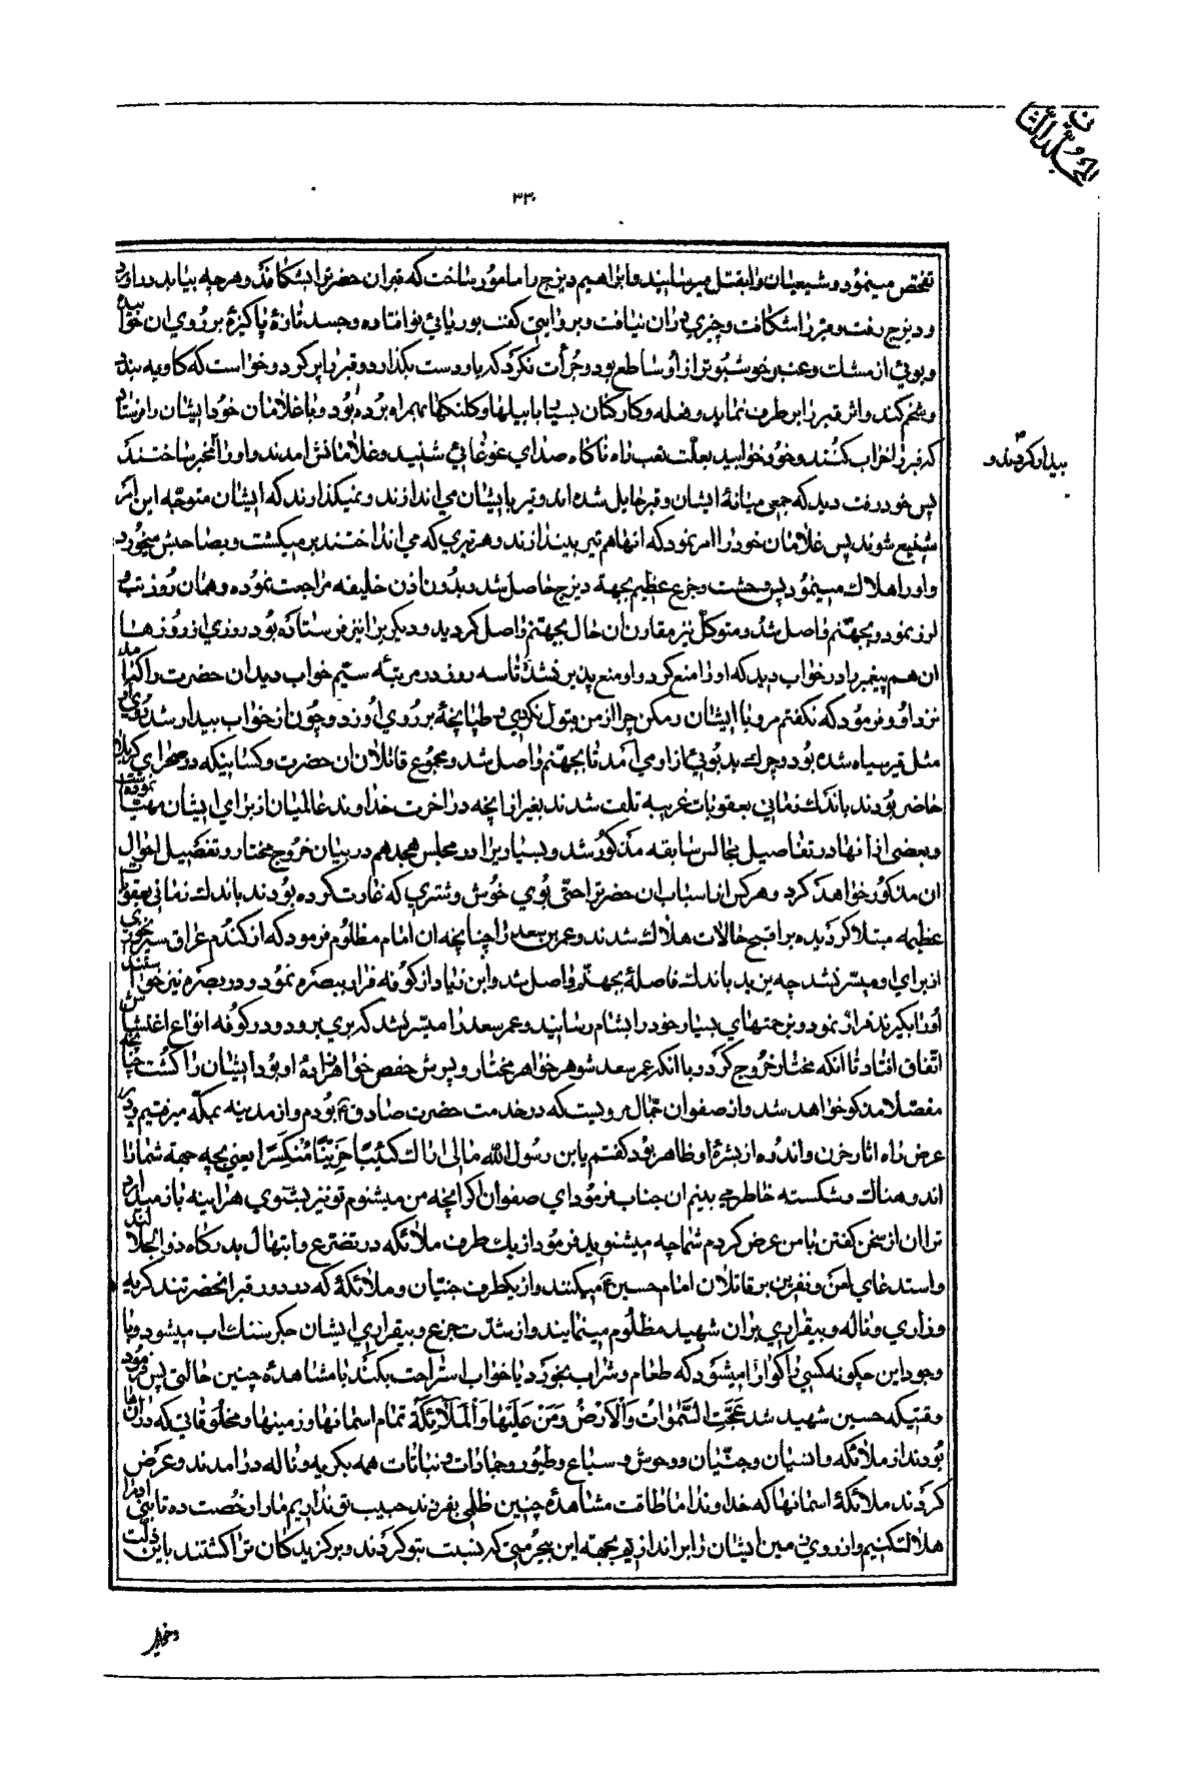 المجلد الثانی
۳۳۰
تفحص مینمود و شیعیان را بقتل میرسانید و ابراهیم دیزج را مامور ساخت که قبر ان حضرترا بشکافد و هرچه بیابد در اورد
و دیزج رفت و قبر را شکافت و چیزی در ان نیافت و بروایتی گفت بوریائی نو افتاده و جسد تازهٔ پاکیزهٔ بر روی ان خوابیده
و بوئی از مشک و عنبر خوشبوتر از او ساطع بود و جرأت نکرد که باو دست بگذارد و قبر را پر کرد و خواست که گاو به بندد
و شخم کند و اثر قبر را بر طرف نماید و فعله و کارکنان بسیار با بیلها و کلنگها بهمراه برده بود و با غلامان خود ایشان را فرستاد
که قبر را خراب کنند و خود خوابید بعلت تعب راه ناگاه صدای غوغائی شنید و غلامانش امدند و او را مخبر ساختند
بیدار کردند و
پس خود رفت دید که جمعی میانهٔ ایشان و قبر حایل شده اند و تیر بایشان می اندازند و نمیگذارند که ایشان متوجه این امر
شنیع شوند پس غلامان خود را امر نمود که انها هم تیر بیندازند و هر تیری که می انداختند بر میگشت و بصاحبش میخورد
و او را هلاک مینمود پس وحشت و جزع عظیم بجهة دیزج حاصل شد و بدون اذن خلیفه مراجعت نموده و همان روز تب
لرز نمود و بجهنم واصل شد و متوکل نیز مقارن ان حال بجهنم واصل گردید و دیگر برا نیز فرستاده بود روزی از روزها
ان هم پیغمبر را در خواب دید که او را منع کرد و او منع پذیر نشد تا سه روز در مرتبهٔ سیم خواب دید ان حضرت را که تند امد
نزد او و فرمود که نگفتم مرو با ایشان و مکن چرا از من قبول نکردی و طپانچهٔ بر روی او زد و چون از خواب بیدار شد روی او
مثل قیر سیاه شده بود و چرک بد بوئی از او می امد تا بجهنم واصل شد و مجموع قاتلان ان حضرت و کسانیکه در صحرای کربلا
حاضر بودند باندک زمانی بعقوبات غریبه تلف شدند بغیر از انچه در اخرت خداوند عالمیان از برای ایشان مهیا نموده است
و بعضی از انها در تفاصیل مجالس سابقه مذکور شد و بسیاریرا در مجلس هجدهم در بیان خروج مختار و تفصیل احوال
ان مذکور خواهد کرد و هر کس از اسباب ان حضرترا حتی بوی خوش و شتری که غارت کرده بودند باندک زمانی بعقوبات
عظیمه مبتلا گردیده بر اقبح حالات هلاک شدند و عمر بن سعد را چنانچه ان امام مظلوم فرمود که از گندم عراق سیر نخوری
از برای او میسر نشد چه یزید باندک فاصلهٔ بجهنم واصل شد و ابن زیاد از کوفه فرار ببصره نمود و در بصره نیز خواستند
او را بگیرند فرار نمود و بزحمتهای بسیار خود را بشام رسانید و عمر سعد را میسر نشد که بری برود و در کوفه انواع اغتشاش
اتفاق افتاد تا انکه مختار خروج کرد و با انکه عمر سعد شوهر خواهر مختار و پسرش حفص خواهرزادهٔ او بود ایشان را کشت چنانچه
مفصلا مذکور خواهد شد و از صفوان جمال مرویست که در خدمت حضرت صادق ع بودم و از مدینه بمکه میرفتیم و در
عرض راه اثار حزن و اندوه از بشرهٔ او ظاهر بود گفتم یابن رسول الله مالی اراک کئیبا حزینا منکسرا یعنی بچه جهة شما را
اندوهناک و شکسته خاطر می بینم ان جناب فرمود ای صفوان اگر انچه من میشنوم تو نیز بشنوی هراینه باز میدارد
ترا ان از سخن گفتن با من عرض کردم شما چه میشنوید فرمود از یک طرف ملائکه در تضرع و ابتهال بدرگاه ذو الجلالند
و استدعای لعن و نفرین بر قاتلان امام حسین ع میکنند و از یکطرف جنیان و ملائکهٔ که در دور قبر انحضرتند گریه
و زاری و ناله و بیقراری بران شهید مظلوم مینمایند و از شدت جزع و بیقراری ایشان جگر سنک اب میشود و با
وجود این چگونه کسی را گوارا میشود که طعام و شراب بخورد یا خواب استراحت بکند با مشاهدهٔ چنین حالتی پس فرمود
وقتیکه حسین شهید شد عَجَّتِ السَّمٰواتُ وَالْاَرْضُ وَمَنْ عَلَیْهٰا وَالْمَلٰائِکَةُ تمام اسمانها و زمینها و مخلوقاتی که در ان ها
بودند از ملائکه و انسیان و جنیان و وحوش و سباع و طیور و جمادات و نباتات همه بگریه و ناله در امدند و عرض
کردند ملائکهٔ اسمانها که خداوندا ما طاقت مشاهدهٔ چنین ظلمی بفرزند حبیب تو نداریم ما را رخصت ده تا بنی ادم را
هلاک کنیم و از روی زمین ایشان را بر اندازیم بجهة این بیحرمتی که نسبت بتو کردند و برگزیدگان ترا کشتند باین ذلت
و خواری